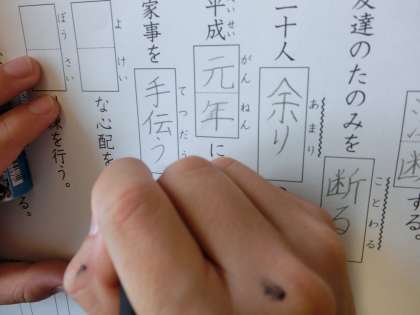 する。
友達のたのみを断る
ことわる
二十人余り
あまり
平成元年に
へいせいがんねん
家事を手伝う
てつだう
な心配を
よけい
を行う。
ぼうさい
る。